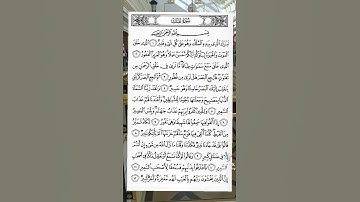 سُورَةُ الْمُلْكِ
بِسْمِ اللَّهِ الرَّحْمَٰنِ الرَّحِيمِ
تَبَارَكَ الَّذِي بِيَدِهِ الْمُلْكُ وَهُوَ عَلَىٰ كُلِّ شَيْءٍ قَدِيرٌ ١ الَّذِي خَلَقَ
الْمَوْتَ وَالْحَيَاةَ لِيَبْلُوَكُمْ أَيُّكُمْ أَحْسَنُ عَمَلًا وَهُوَ الْعَزِيزُ الْغَفُورُ ٢
الَّذِي خَلَقَ سَبْعَ سَمَاوَاتٍ طِبَاقًا مَا تَرَىٰ فِي خَلْقِ الرَّحْمَٰنِ مِنْ
تَفَاوُتٍ فَارْجِعِ الْبَصَرَ هَلْ تَرَىٰ مِنْ فُطُورٍ ٣ ثُمَّ ارْجِعِ الْبَصَرَ
كَرَّتَيْنِ يَنْقَلِبْ إِلَيْكَ الْبَصَرُ خَاسِئًا وَهُوَ حَسِيرٌ ٤ وَلَقَدْ زَيَّنَّا السَّمَاءَ
الدُّنْيَا بِمَصَابِيحَ وَجَعَلْنَاهَا رُجُومًا لِلشَّيَاطِينِ وَأَعْتَدْنَا لَهُمْ عَذَابَ
السَّعِيرِ ٥ وَلِلَّذِينَ كَفَرُوا بِرَبِّهِمْ عَذَابُ جَهَنَّمَ وَبِئْسَ الْمَصِيرُ ٦
إِذَا أُلْقُوا فِيهَا سَمِعُوا لَهَا شَهِيقًا وَهِيَ تَفُورُ ٧ تَكَادُ تَمَيَّزُ
مِنَ الْغَيْظِ كُلَّمَا أُلْقِيَ فِيهَا فَوْجٌ سَأَلَهُمْ خَزَنَتُهَا أَلَمْ يَأْتِكُمْ نَذِيرٌ ٨
قَالُوا بَلَىٰ قَدْ جَاءَنَا نَذِيرٌ فَكَذَّبْنَا وَقُلْنَا مَا نَزَّلَ اللَّهُ مِنْ شَيْءٍ إِنْ أَنْتُمْ
إِلَّا فِي ضَلَالٍ كَبِيرٍ ٩ وَقَالُوا لَوْ كُنَّا نَسْمَعُ أَوْ نَعْقِلُ مَا كُنَّا فِي أَصْحَابِ
السَّعِيرِ ١٠ فَاعْتَرَفُوا بِذَنْبِهِمْ فَسُحْقًا لِأَصْحَابِ السَّعِيرِ ١١
إِنَّ الَّذِينَ يَخْشَوْنَ رَبَّهُمْ بِالْغَيْبِ لَهُمْ مَغْفِرَةٌ وَأَجْرٌ كَبِيرٌ ١٢